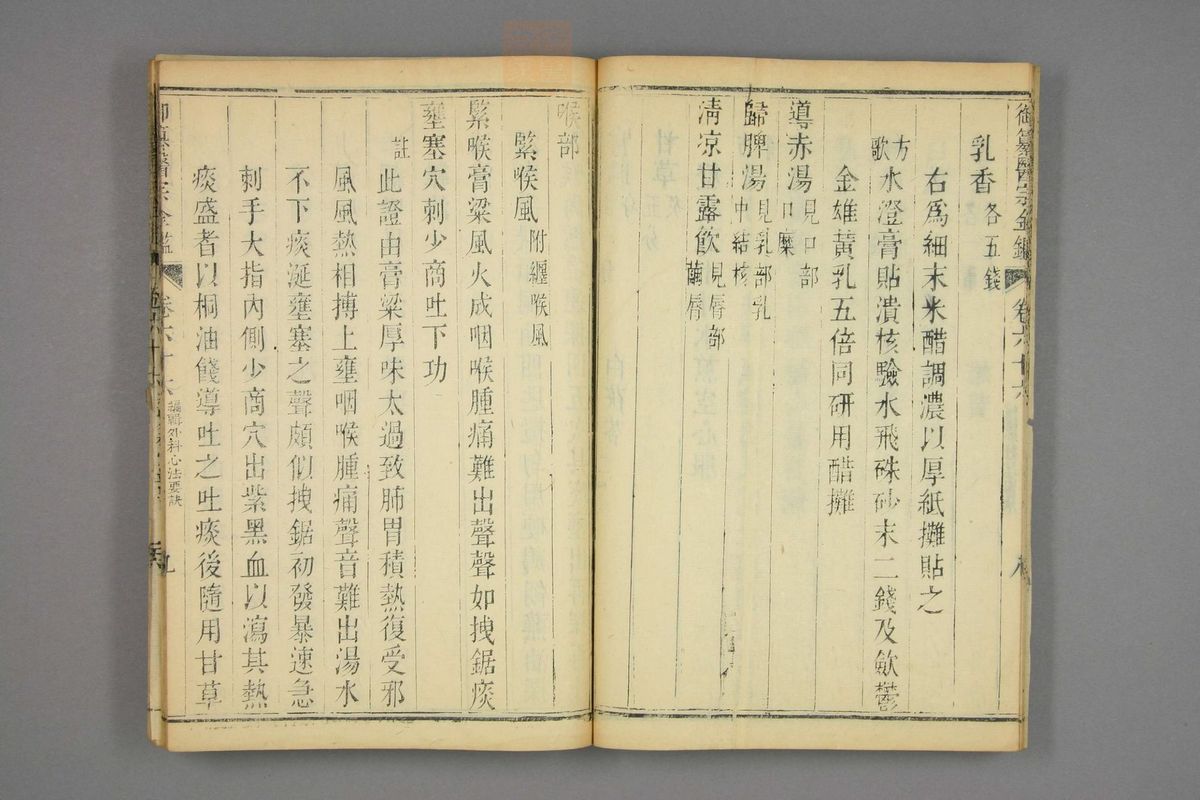 御纂醫宗金鑑 卷六十六
乳香各五錢
右為細末米醋調濃以厚紙攤貼之
方歌 水澄膏貼潰核驗水飛硃砂末二錢及歛鬱
金雄黃乳五倍同研用醋攤
導赤湯見口部口糜
歸脾湯見乳部乳中結核
清凉甘露飲見唇部繭唇
喉部
緊喉風附纏喉風
緊喉膏粱風火成咽喉腫痛難出聲聲如拽鋸痰
壅塞穴刺少商吐下功
註 此證由膏粱厚味太過致肺胃積熱復受邪
風風熱相搏上壅咽喉腫痛聲音難出湯水
不下痰涎壅塞之聲頗似拽鋸初發暴速急
刺手大指內側少商穴出紫黑血以瀉其熱
痰盛者以桐油餞導吐之吐痰後隨用甘草
卷六十六 編輯外科心法要訣 九